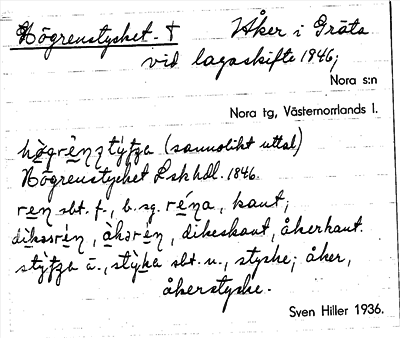 Högrenstycket - † Åker i Gräta
vid lagaskifte 1946;
Nora s:n
Nora tg, Västernorrlands l.
(sannolikt uttal)
Högrenstycket Lskhdl. 1846.
ren sbt. f., b. sg. réna, kant;
dikesrén, åkərén, dikeskant, åkerkant.
sbt. n., stycke; åker,
åkerstycke.
Sven Hiller 1936.